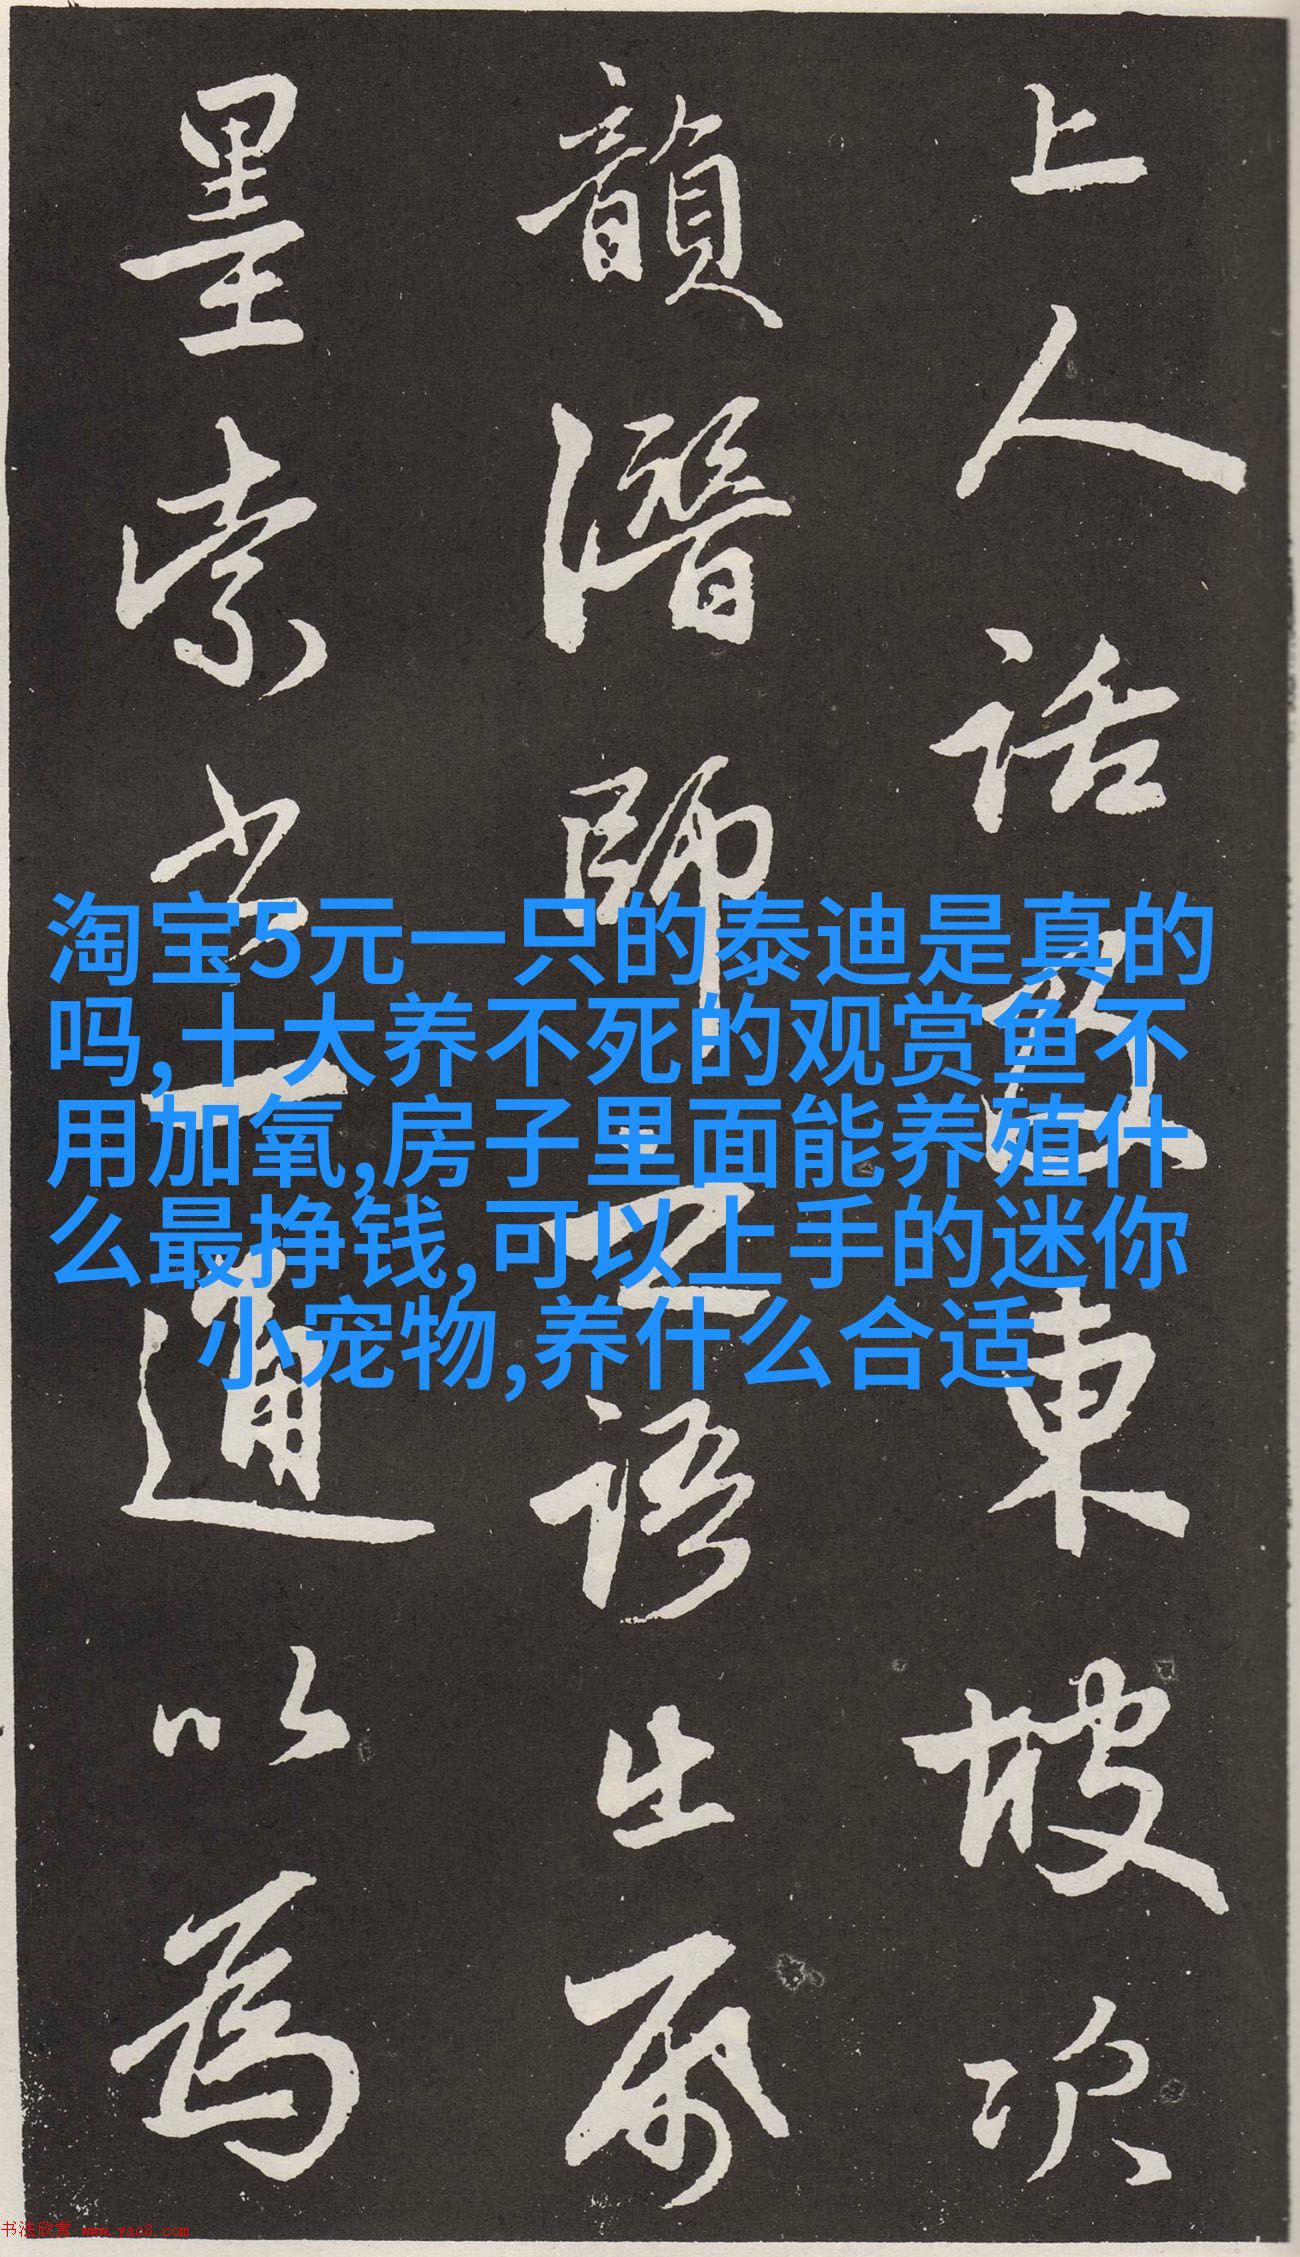 上人話東坡次
韻潛師之語出
墨索書一通以為
淘宝5元一只的泰迪是真的
吗,十大养不死的观赏鱼不
用加氧,房子里面能养殖什
么最挣钱,可以上手的迷你
小宠物,养什么合适
书法欣赏 www.yac8.com